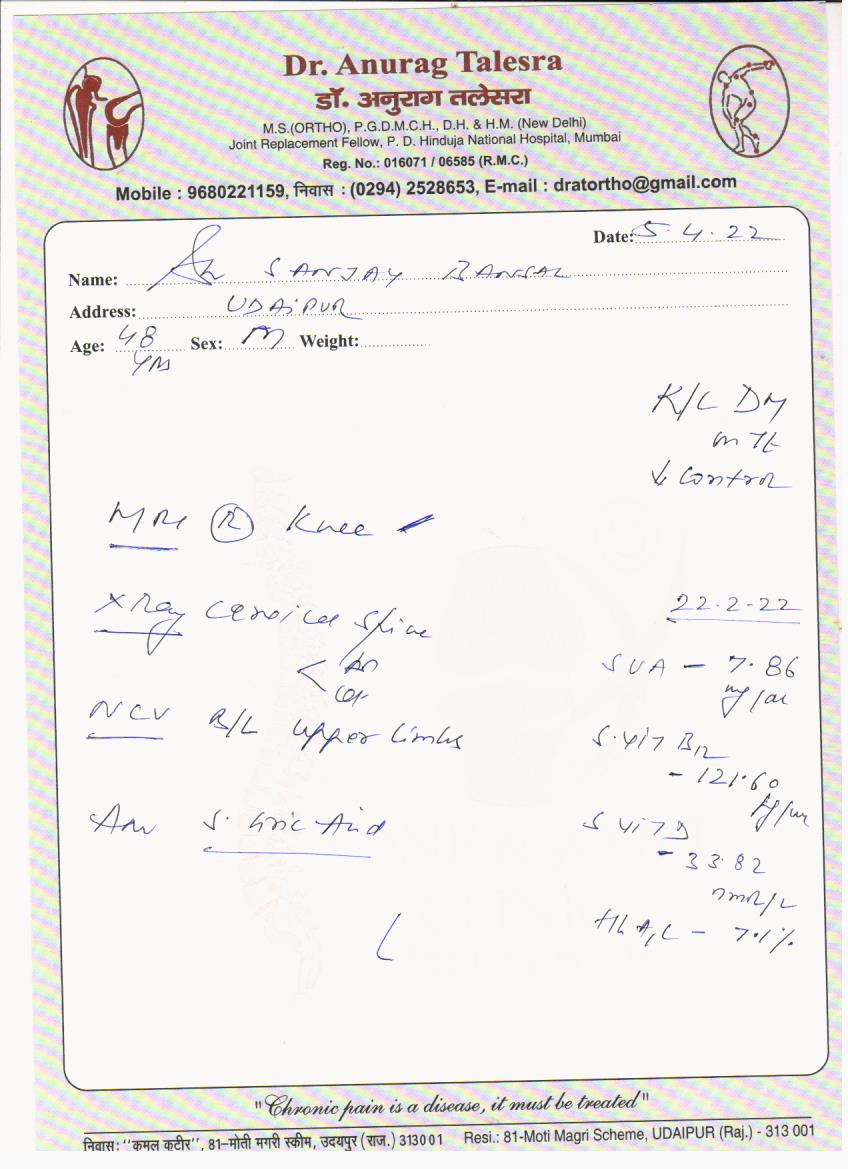 Dr. Anurag Talesra
डॉ. अनुराग तलेसरा
M.S.(ORTHO), P.G.D.M.C.H., D.H. & H.M. (New Delhi)
Joint Replacement Fellow, P. D. Hinduja National Hospital, Mumbai
Reg. No.: 016071 / 06585 (R.M.C.)
Mobile : 9680221159, निवास : (0294) 2528653, E-mail : dratortho@gmail.com
Date: 5.4.22
Name: Sh SANJAY BANSAL
Address: UDAIPUR
Age: 48 Yrs Sex: M Weight:
K/C DM
on Tt
control
MRI (R) Knee
X Ray Cervical Spine
22.2-22
< AP
SUA - 7.86
mg/dl
NCV B/L upper limbs
S. Vit B12
- 121.60
Pg/ml
S. Uric Acid
S Vit D
- 33.82
nmol/L
HbA1C - 7.1%
"Chronic pain is a disease, it must be treated"
निवास: "कमल कुटीर", 81-मोती मगरी स्कीम, उदयपुर (राज.) 313001 Resi.: 81-Moti Magri Scheme, UDAIPUR (Raj.) - 313 001